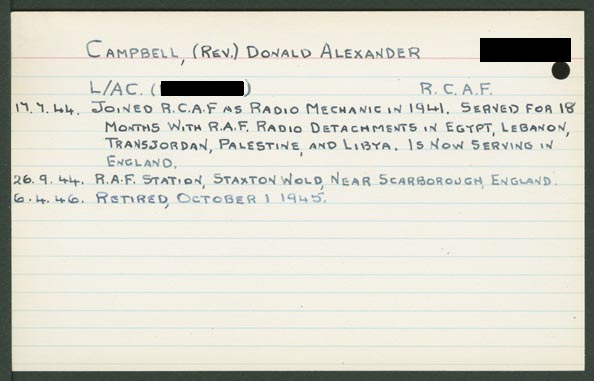 CAMPBELL, (REV.) DONALD ALEXANDER
L/AC. ( ) R.C.A.F.
17.7.44. JOINED R.C.A.F AS RADIO MECHANIC IN 1941. SERVED FOR 18
MONTHS WITH R.A.F. RADIO DETACHMENTS IN EGYPT, LEBANON,
TRANSJORDAN, PALESTINE, AND LIBYA. IS NOW SERVING IN
ENGLAND.
26.9.44. R.A.F. STATION, STAXTON WOLD, NEAR SCARBOROUGH, ENGLAND.
6.4.46. RETIRED, OCTOBER 1 1945.